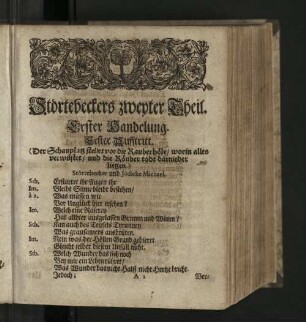 Störtebeckers zweyter Theil.
Erster Handelung.
Erster Aufftritt.
(Der Schauplatz stellet vor die Rauberhöle/ worin alles
verwüstet/ und die Räuber todt darnieder
liegen.)
Störtebecker und Jödecke Michael.
Sch. Erstarret ihr Augen ihr
Jm. Bleibt Sinne bleibt bestehen/
à 2. Was müssen wir
Vor Unglück hier ersehen?
Jm. Welch eine Raserey
Hat allhier ausgelassen Grimm und Wüten?
Sch. Kan auch des Teufels Tyranney
Was grausamers ausbrüten.
Jm. Nein was der Höllen Brand gebieret
Gleicht selber diesem Unfall nicht.
Sch. Welch Wunder das sich noch
Bey mir ein Leben rühret/
Was Wunder das nicht Halß nicht Hertze bricht.
Jedoch: A 2 Ver-